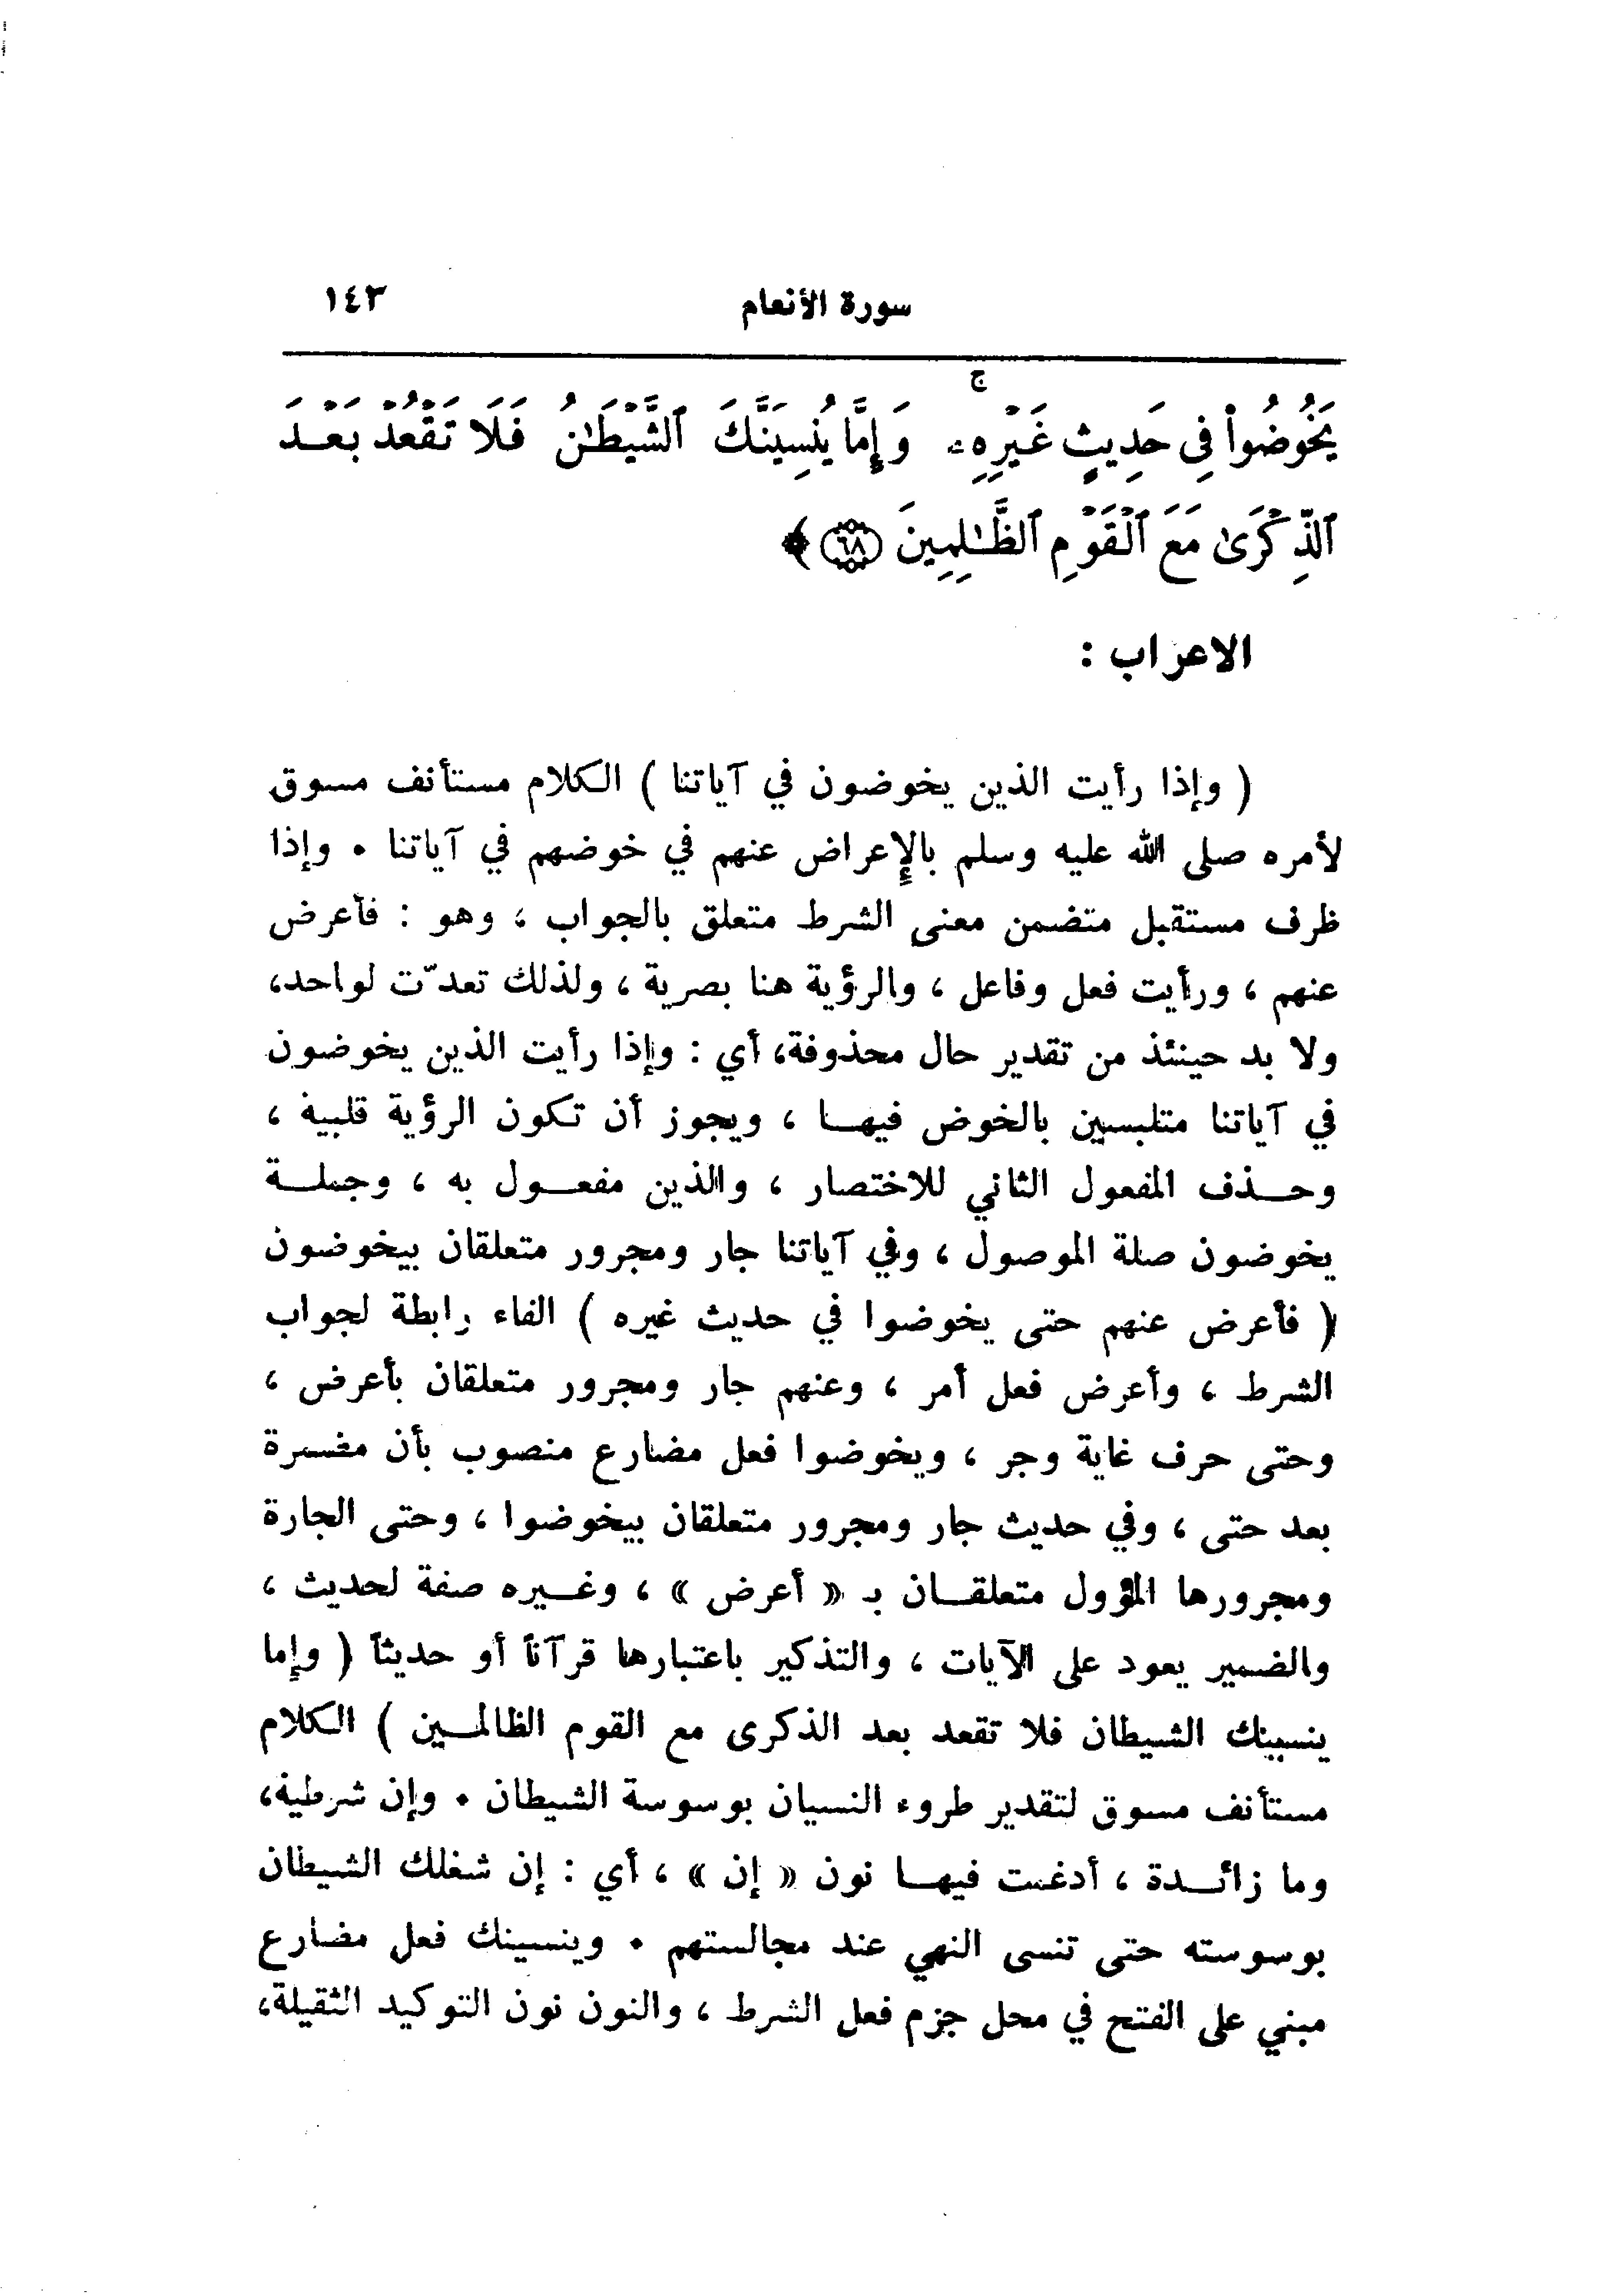 سورة الأنعام ١٤٣
يَخُوضُواْ فِى حَدِيثٍ غَيْرِهِۦ ۚ وَإِمَّا يُنسِيَنَّكَ ٱلشَّيْطَـٰنُ فَلَا تَقْعُدْ بَعْدَ
ٱلذِّكْرَىٰ مَعَ ٱلْقَوْمِ ٱلظَّـٰلِمِينَ ٦٨ ﴾
الاعراب :
( وإذا رأيت الذين يخوضون في آياتنا ) الكلام مستأنف مسوق
لأمره صلى الله عليه وسلم بالإعراض عنهم في خوضهم في آياتنا . وإذا
ظرف مستقبل متضمن معنى الشرط متعلق بالجواب ، وهو : فأعرض
عنهم ، ورأيت فعل وفاعل ، والرؤية هنا بصرية ، ولذلك تعدّت لواحد،
ولا بد حينئذ من تقدير حال محذوفة، أي : وإذا رأيت الذين يخوضون
في آياتنا متلبسين بالخوض فيهـا ، ويجوز أن تكون الرؤية قلبية ،
وحـذف المفعول الثاني للاختصار ، والذين مفعـول به ، وجملـة
يخوضون صلة الموصول ، وفي آياتنا جار ومجرور متعلقان بيخوضون
( فأعرض عنهم حتى يخوضوا في حديث غيره ) الفاء رابطة لجواب
الشرط ، وأعرض فعل أمر ، وعنهم جار ومجرور متعلقان بأعرض ،
وحتى حرف غاية وجر ، ويخوضوا فعل مضارع منصوب بأن مضمرة
بعد حتى ، وفي حديث جار ومجرور متعلقان بيخوضوا ، وحتى الجارة
ومجرورها المؤول متعلقـان بـ « أعرض » ، وغـيره صفة لحديث ،
والضمير يعود على الآيات ، والتذكير باعتبارها قرآناً أو حديثاً ( وإما
ينسينك الشيطان فلا تقعد بعد الذكرى مع القوم الظالمـين ) الكلام
مستأنف مسوق لتقدير طروء النسيان بوسوسة الشيطان . وإن شرطية،
وما زائـدة ، أدغمت فيهـا نون « إن » ، أي : إن شغلك الشيطان
بوسوسته حتى تنسى النهي عند مجالستهم . وينسينك فعل مضارع
مبني على الفتح في محل جزم فعل الشرط ، والنون نون التوكيد الثقيلة،